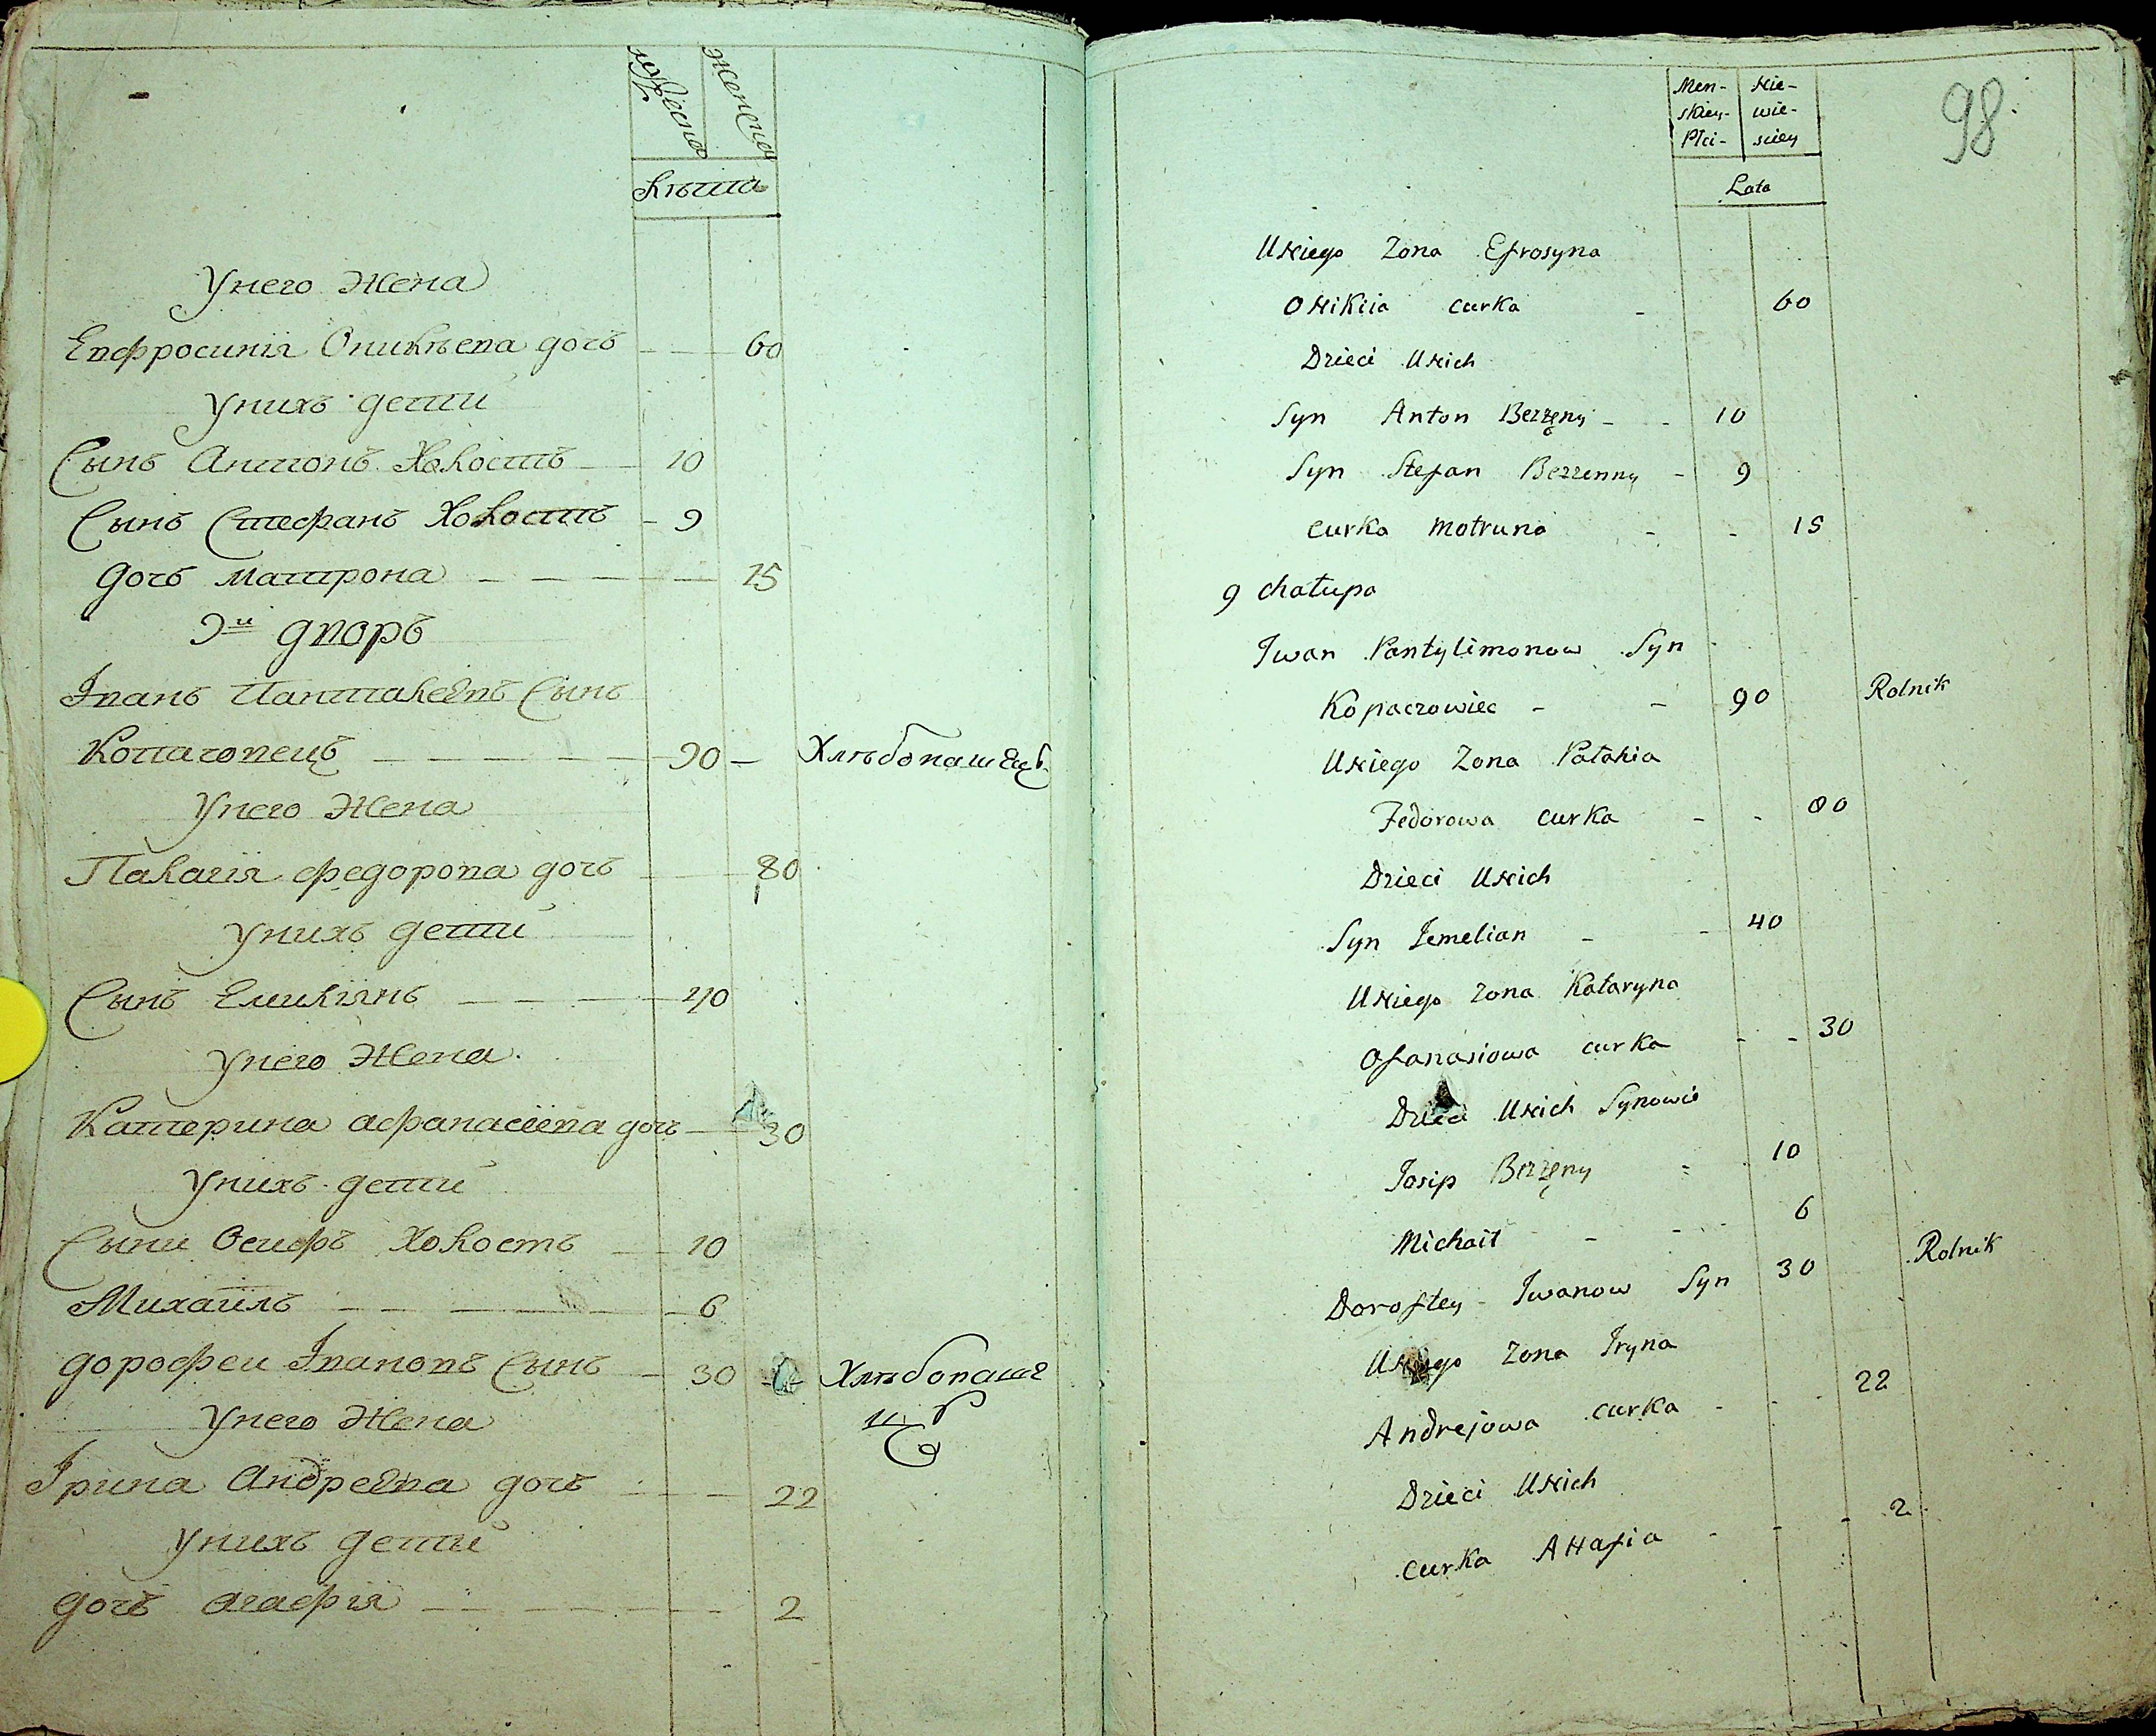 мужеска
женска
лѣта
Унего жена
Евфросинія Оникѣева дочь 60
Унихъ дети
Сынъ Антонъ Холостъ 10
Сынъ Стефанъ Холостъ 9
Дочь Матрона 15
9й дворъ
Іванъ Панталеевъ Сынъ
Копачовецъ 90 Хлѣбопашецъ
Унего жена
Палагія Федорова дочь 80
Унихъ дети
Сынъ Емиліянъ 40
Унего жена
Катерина Афанасіева дочь 30
Унихъ дети
Сыни Осифъ Холостъ 10
Михаилъ 6
Дорофеи Івановъ Сынъ 30 Хлѣбопаше
цъ
Унего жена
Ірина Андреева дочь 22
Унихъ дети
Дочь Агафія 2
98
Men- Nie-
skiey- wie-
Płci- sciey
Lata
Uniego Zona Efrosyna
Onikiia curka 60
Dzieci Unich
Syn Anton Bezżęny 10
Syn Stefan Bezzenny 9
curka Motruna 15
9 chałupa
Iwan Pantylimonow Syn
Kopaczowiec 90 Rolnik
Uniego Zona Palahia
Fedorowa curka 80
Dzieci Unich
Syn Jemelian 40
Uniego Zona Kataryna
Ofanasiowa curka 30
Dzieci Unich Synowie
Josip Bezżęny 10
Michaił 6
Doroftey Iwanow Syn 30 Rolnik
Uniego Zona Iryna
Andrejowa curka 22
Dzieci Unich
curka Ahafia 2